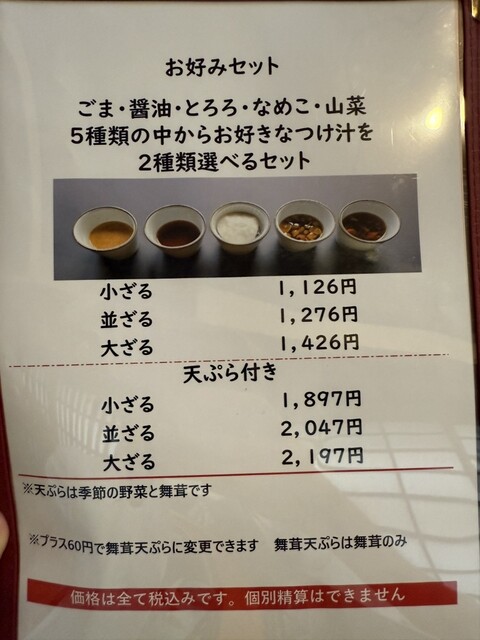 お好みセット
ごま・醤油・とろろ・なめこ・山菜
5種類の中からお好きなつけ汁を
2種類選べるセット
小ざる 1,126円
並ざる 1,276円
大ざる 1,426円
天ぷら付き
小ざる 1,897円
並ざる 2,047円
大ざる 2,197円
※天ぷらは季節の野菜と舞茸です
※プラス60円で舞茸天ぷらに変更できます 舞茸天ぷらは舞茸のみ
価格は全て税込みです。個別精算はできません